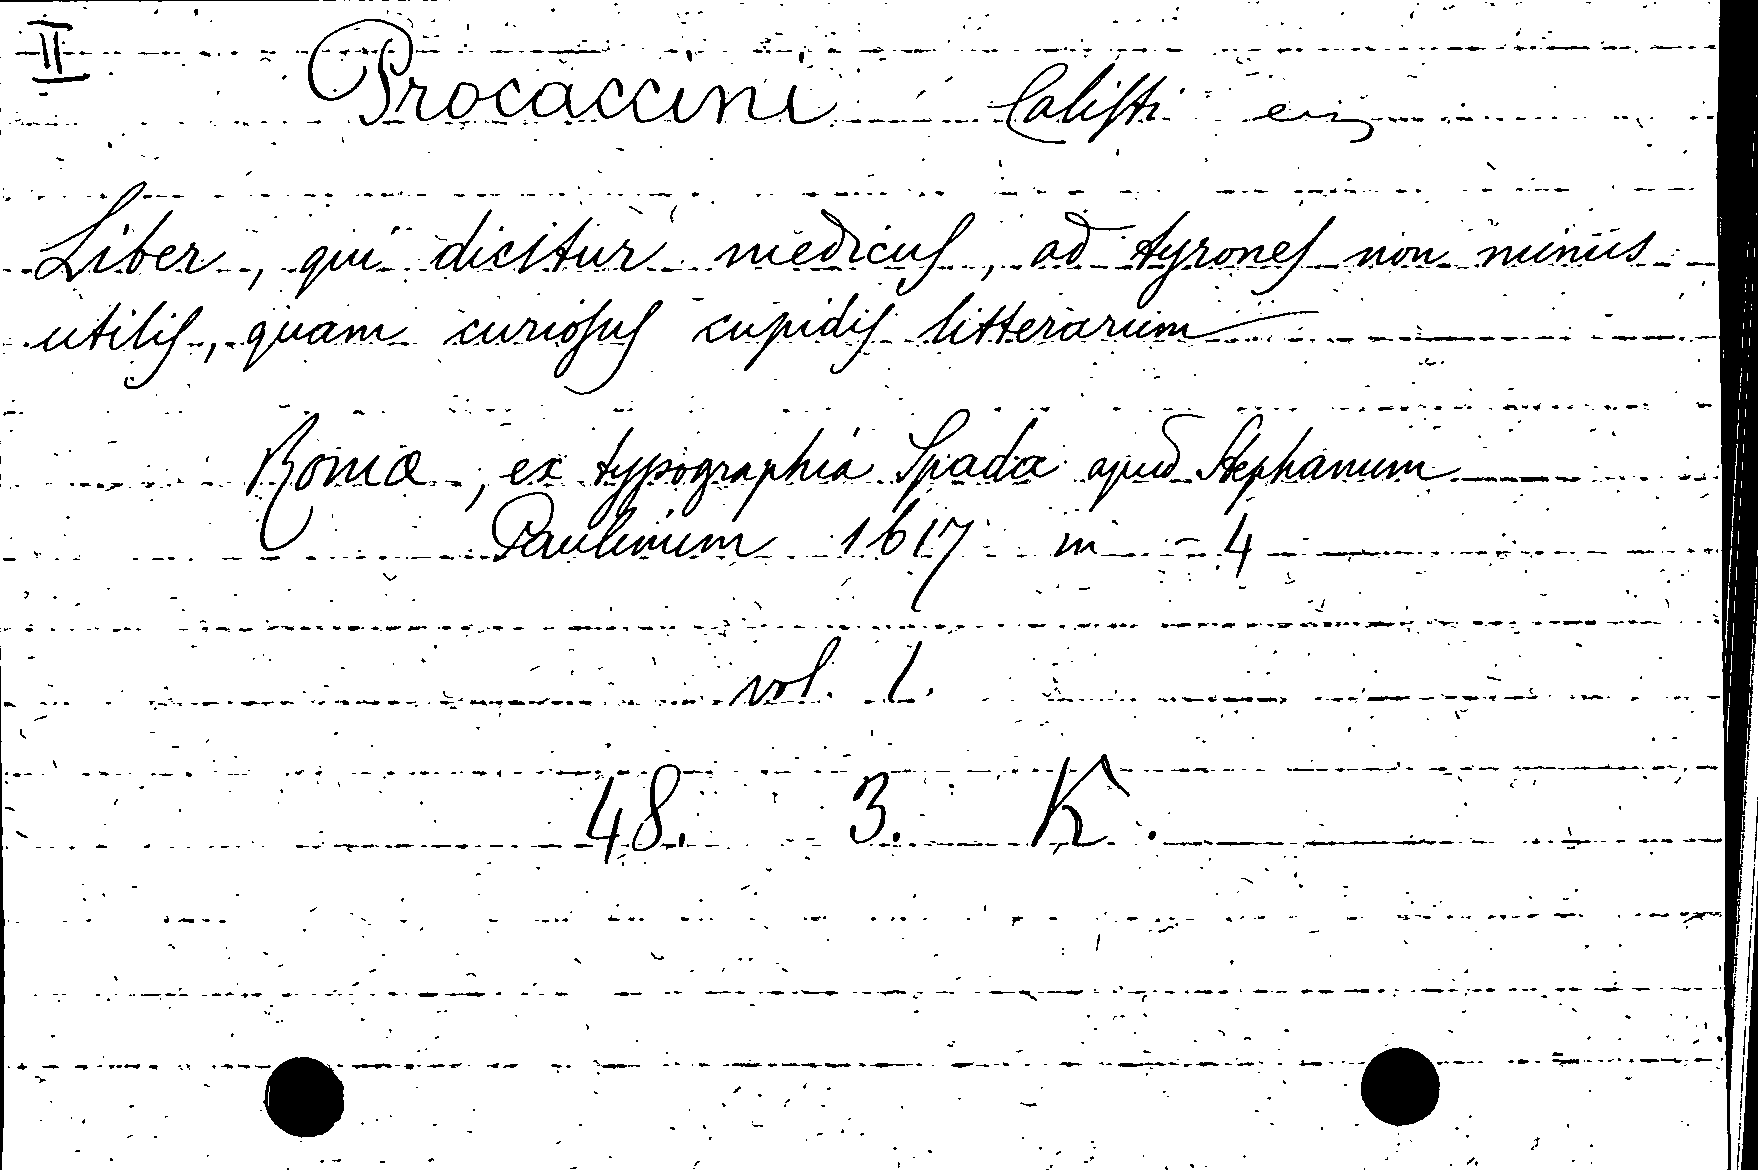 II
Procaccini Calisti
Liber, qui dicitur medicus, ad tyrones non minus
utilis, quam curiosus cupidis litterarum
Romæ, ex typographia Spada apud Stephanum
Paulinum 1617 in - 4
vol. 1.
48. 3. K.